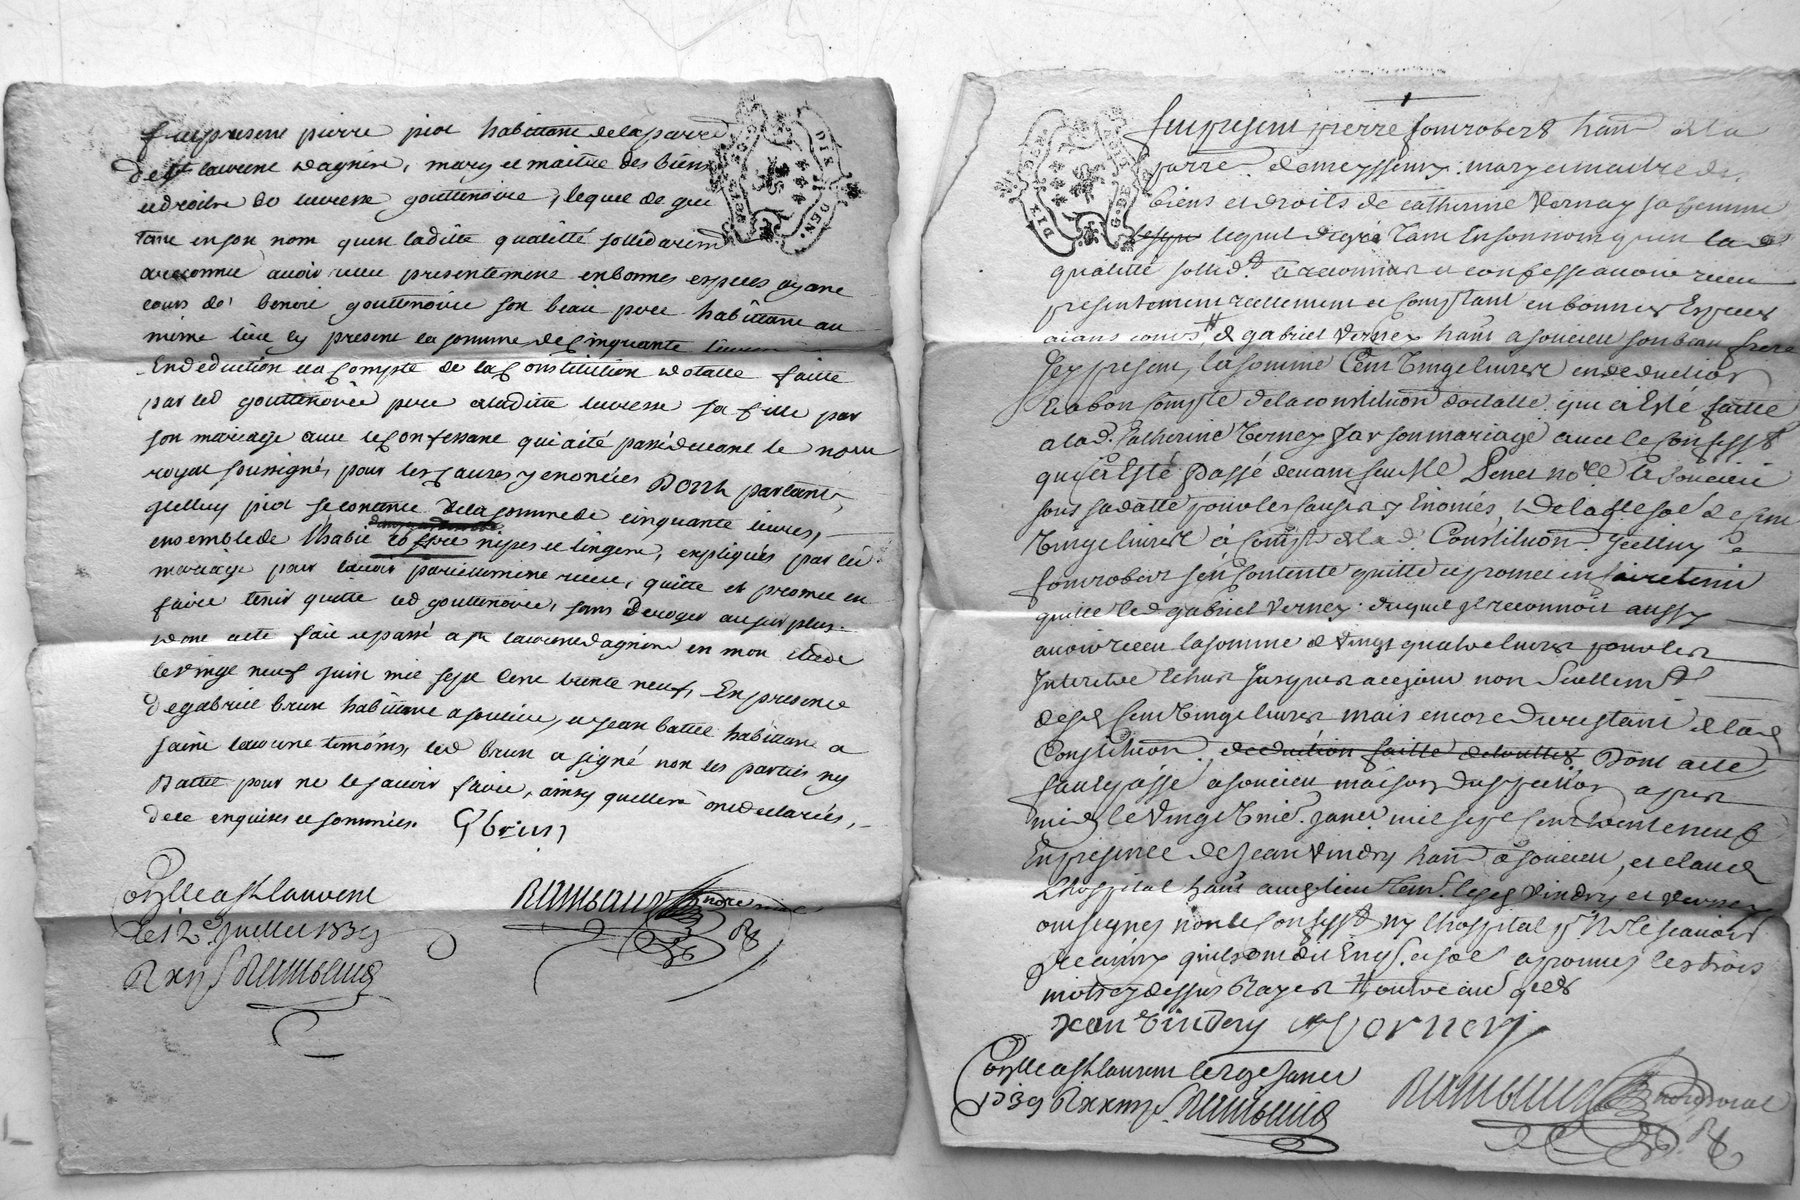 fut present pierre piot habittant de la parre
de st laurent dagnin, mary et maitre des biens
et droits de lucresse gouttenoire, lequel de gre
tant en son nom quen laditte qualitté sollidairem
a reconnu avoir receu presentement en bonnes especes ayant
cours de benoit gouttenoire son beau pere habittant au
mème lieu cy present la somme de Cinquante livres
En deduction et a Compte de la Constitution dotalle faitte
par led gouttenoire pere a laditte lucresse sa fille par
son mariage avec le Confessant qui a été passé devant le nore
royal soussigné, pour les causes y enoncées Dont partant
icelluy piot se contente de la somme de cinquante livres,
ensemble de l'habit nipes et lingerie, expliqués par led
mariage pour lavoir pareillement receu, quitte et promet en
faire tenir quitte led gouttenoire, sans deroger au surplus.
dont acte fait et passé a st laurent dagnin en mon etude
le vingt neuf juin mil sept cent trente neuf, En presence
de gabriel brun habittant a soucieu, et jean battie habittant a
saint laurent temoins, led brun a signé non les parties ny
Battie pour ne le savoir faire, ainsy quelles ont declarés,
de ce enquises et sommées. G brun
DIX DEN.
G. DE
Conlle a St Laurent
le 12e Juillet 1739
R xij s Rambaud
Rambaud
fut present pierre fontrobert hant de la
parre. de messimy: mary et maitre des
biens et droits de catherine Verney sa femme
lequel de gré tant En son nom quen lad
qualitté sollid. a reconnu et confesse avoir receu
presentement reellement et Comptant en bonnes Especes
aians cours, de gabriel Verney hant a soucieu son beau frere
Icy present, la somme Cent Vingt livres en deduction
Et a bon Compte de la constitution dotalle qui a Esté faitte
a lad. Catherine Verney par son mariage avec le Confesst
qui a Esté passé devant feu Me nore a soucieu
sous sa datte pour les causes y Enoncés, de laqlle some de cent
Vingt livres à Compt de lad. Constitution. Icelluy
fontrobert s'en Contente quitte et promet en faire tenir
quitte led gabriel Verney: duquel il reconnoit aussy
avoir receu la somme de Vingt quatre livres pour les
Interets Echus Jusques a ce jour non Seullemt
desd Cent Vingt livres mais encore du restant de lad
Constitution, deduction faitte Dont acte
fait et passé a soucieu maison apres
midy le Vingt Janer mil sept Cent trente neuf
En presence de Jean Vindry hant a soucieu, et claude
Lhospital hant aud lieu tem. lesqs Vindry et Verney
ont signés non le Confesst ny Lhospital pr Ne le scavoir
de ainsy quils ont dit Enqs. et some approuves les trois
mots cy dessus Rayes
Jean Vindry G Verney
DIX DEN.
G. DE
Conlle a St Laurent le Janer
1739 R xxiiij s. Rambaud
Rambaud